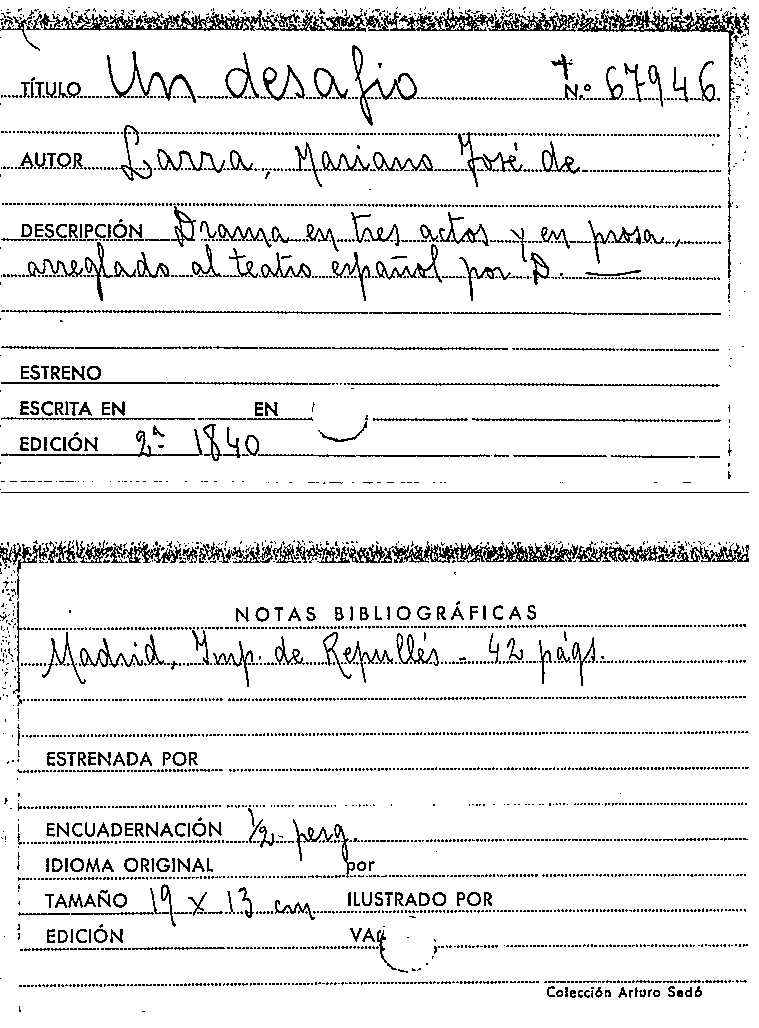 TÍTULO Un desafio N.º 67946
AUTOR Larra, Mariano José de
DESCRIPCIÓN Drama en tres actos y en prosa,
arreglado al teatro español por D. —
ESTRENO
ESCRITA EN EN
EDICIÓN 2ª 1840
NOTAS BIBLIOGRÁFICAS
Madrid, Imp. de Repullés - 42 págs.
ESTRENADA POR
ENCUADERNACIÓN 1/2 perg.
IDIOMA ORIGINAL por
TAMAÑO 19 x 13 cm ILUSTRADO POR
EDICIÓN
Colección Arturo Sedó